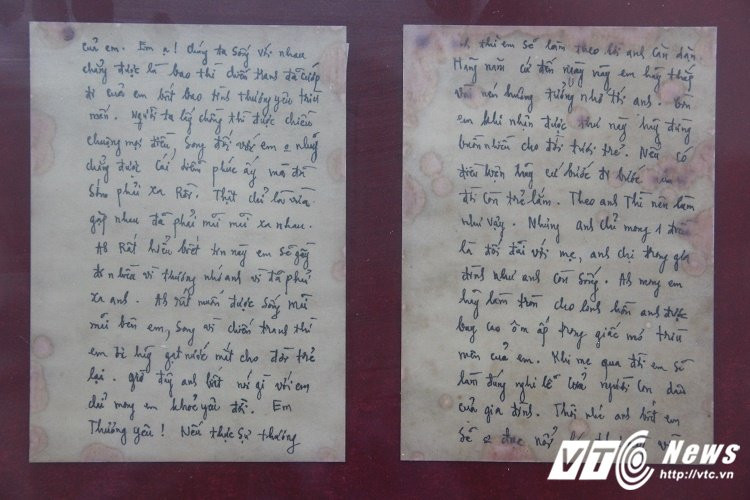 của em. Em ạ! Chúng ta sống với nhau
chẳng được là bao thì chiến tranh đã cướp
đi của em biết bao tình thương yêu trìu
mến. Người ta lấy chồng thì được chiều
chuộng mọi điều, song đối với em o những
chẳng được cái diễm phúc ấy mà đã
sớm phải xa Rồi. Thật chỉ là vừa
gặp nhau đã phải mãi mãi xa nhau.
A6 Rất hiểu biết tin này em sẽ gầy
đi nhiều vì thương nhớ anh vì đã phải
xa anh. A6 rất muốn được sống mãi
mãi bên em, song vì chiến tranh thì
em ơi hãy gạt nước mắt cho đời trẻ
lại. giờ đây anh biết nói gì với em
chỉ mong em khoẻ yêu đời. Em
Thương yêu! Nếu thực sự thương
thì em sẽ làm theo lời anh căn dặn.
Hàng năm cứ đến ngày này em hãy thắp
vài nén hương tưởng nhớ tới anh. Còn
em khi nhận được thư này hãy đừng
buồn nhiều cho đời trươi trẻ. Nếu có
điều kiện hãy cứ bước đi bước
đời còn trẻ lắm. Theo anh Thì nên làm
như vậy. Nhưng anh chỉ mong 1 điều
là đối đãi với mẹ, anh chị trong gia
đình như anh còn sống. A6 mong em
hãy làm tròn cho linh hồn anh được
bay cao ôm ấp trong giấc mơ trìu
mến của em. Khi mẹ qua đời em sẽ
làm đúng nghi lễ của người con dâu
của gia đình. Thôi nhé anh biết em
sẽ o đọc nổi
VTC News
http://vtc.vn